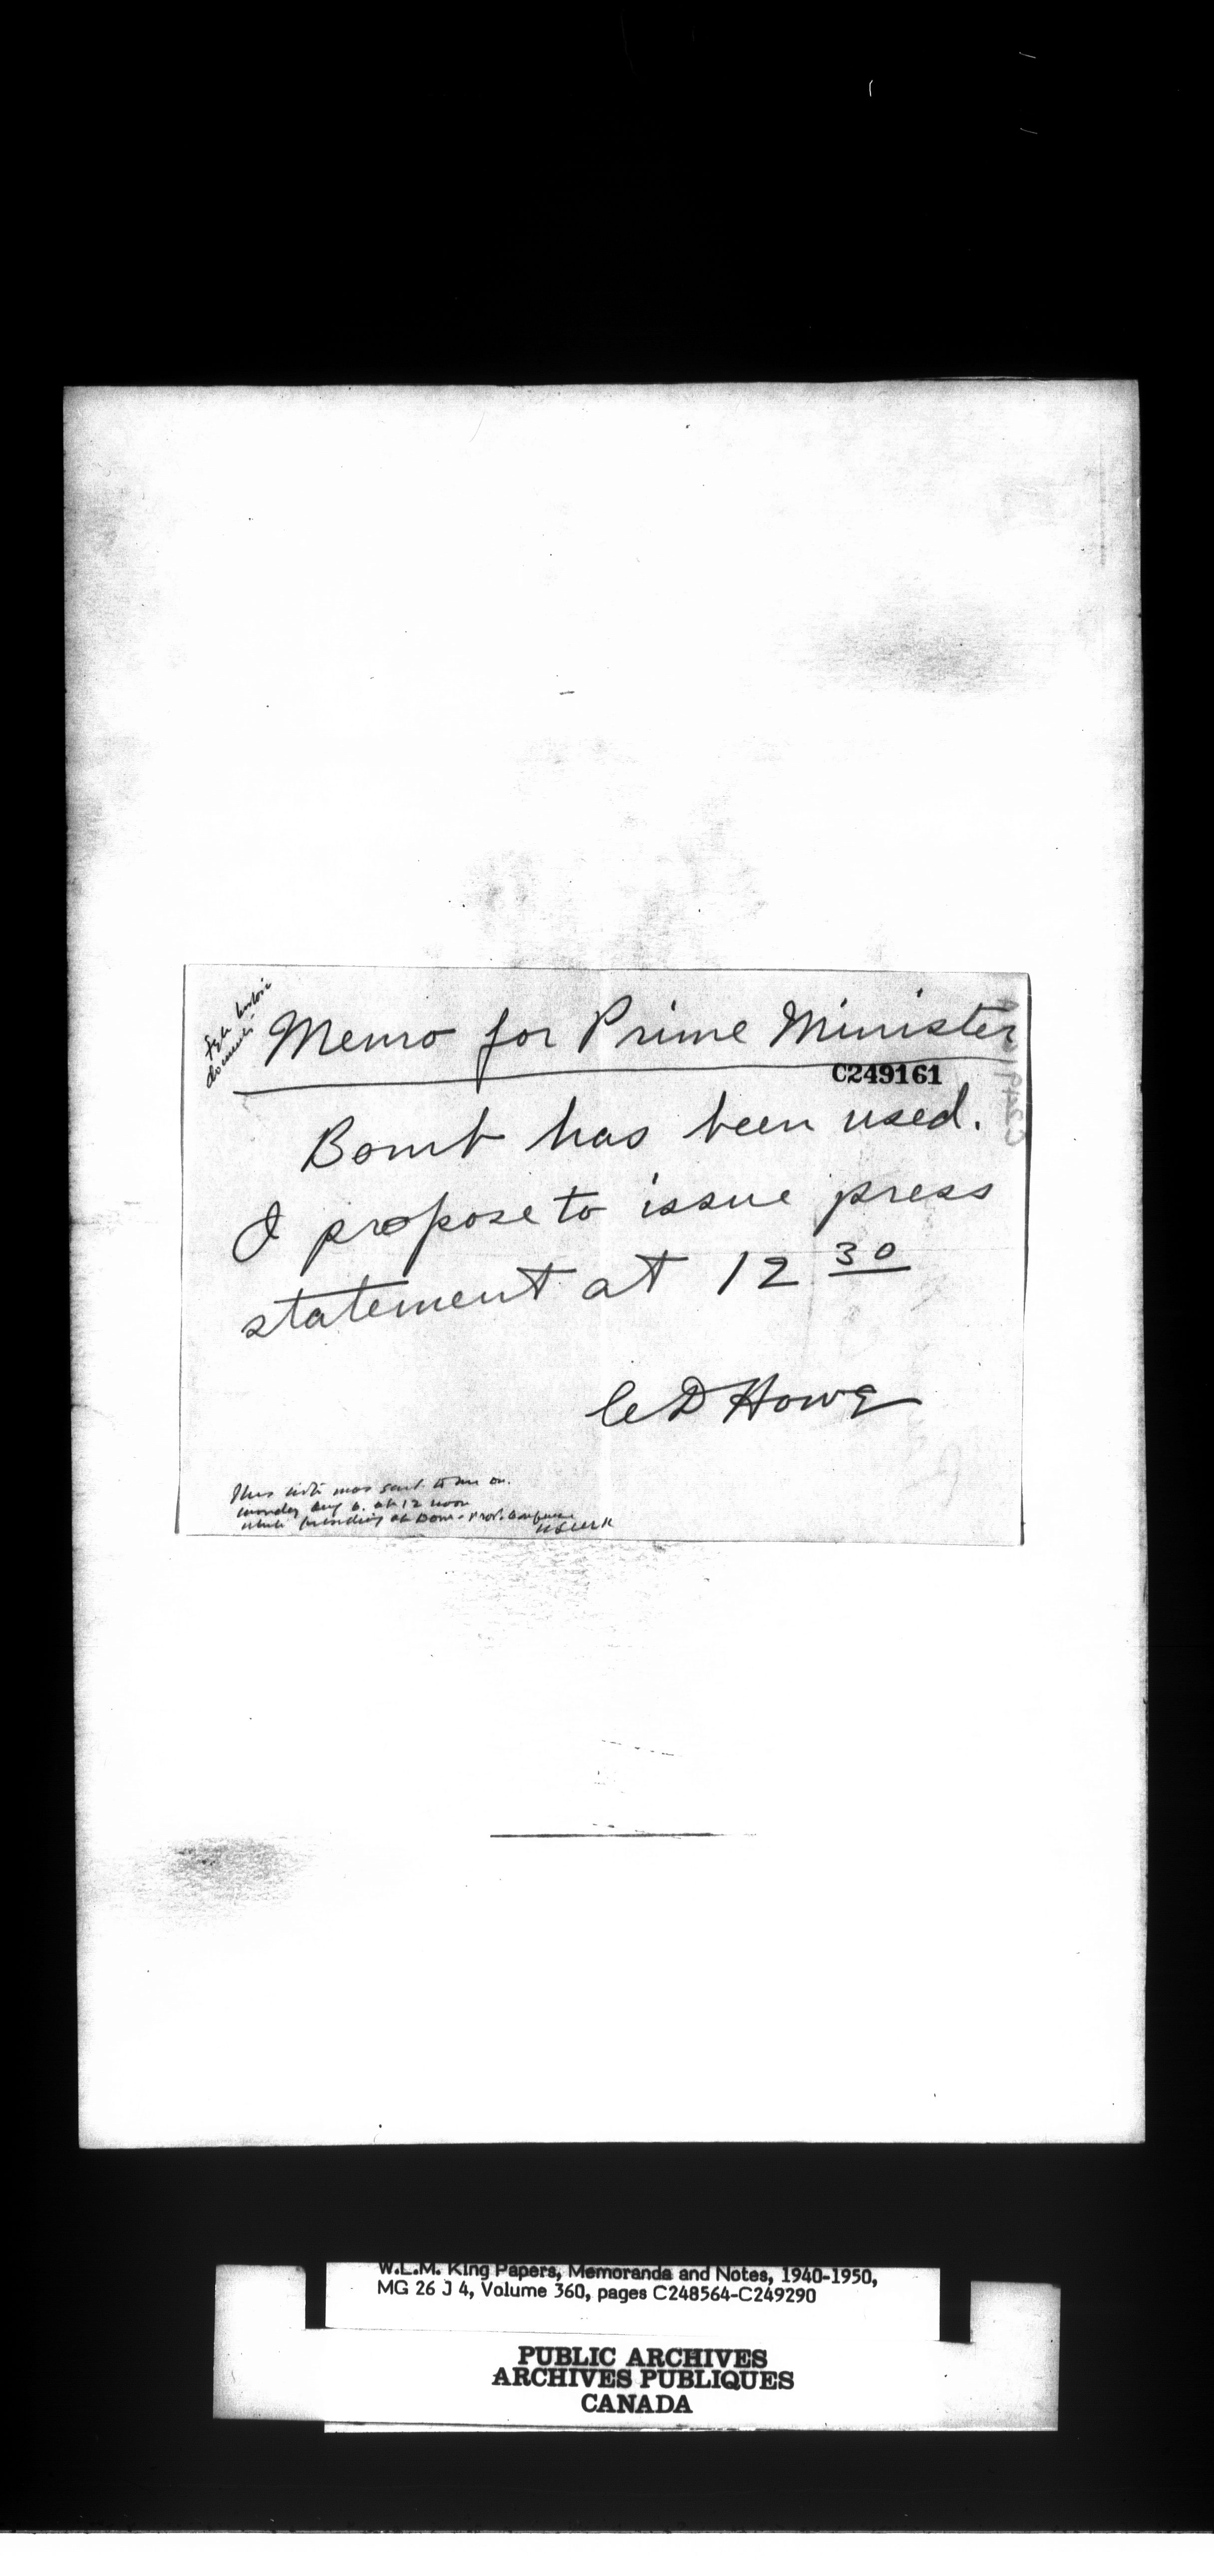 historic
document
Memo for Prime Minister
C249161
Bomb has been used.
I propose to issue press
statement at 12 30
C D Howe
This note was sent to me on
monday Aug 6. at 12 noon
while presiding at Dom-Prov. Conference
WLMK
W.L.M. King Papers, Memoranda and Notes, 1940-1950,
MG 26 J 4, Volume 360, pages C248564-C249290
PUBLIC ARCHIVES
ARCHIVES PUBLIQUES
CANADA